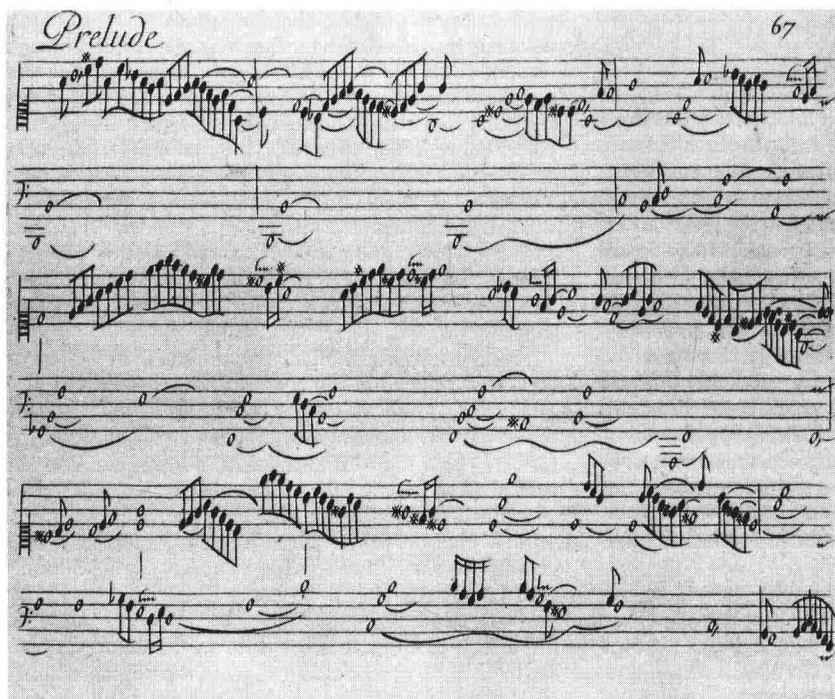 Prelude
67